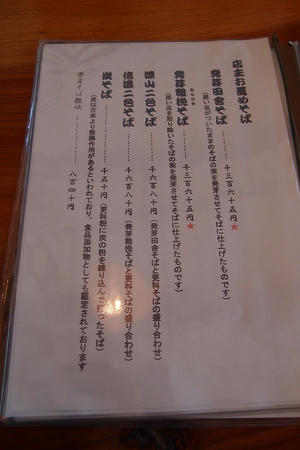 店主お薦めそば
発芽田舎そば………………千三百六十五円★
(黒い皮がついたままのそばの実を発芽させてそばに仕上げたものです)
発芽粗挽そば………………千三百六十五円★
あらびき
(黒い皮を取り除いたそばの実を発芽させてそばに仕上げたものです)
深山二色そば………………千六百八十円(発芽田舎そばと更科そばの盛り合わせ)
信濃二色そば………………千六百八十円(発芽粗挽そばと更科そばの盛り合わせ)
炭そば………………千五十円(更科粉に炭の粉を練り込んで打ったそば)
(炭は古来より整腸作用があるといわれており、食品添加物としても認定されております
発芽そば雑炊………………八百四十円